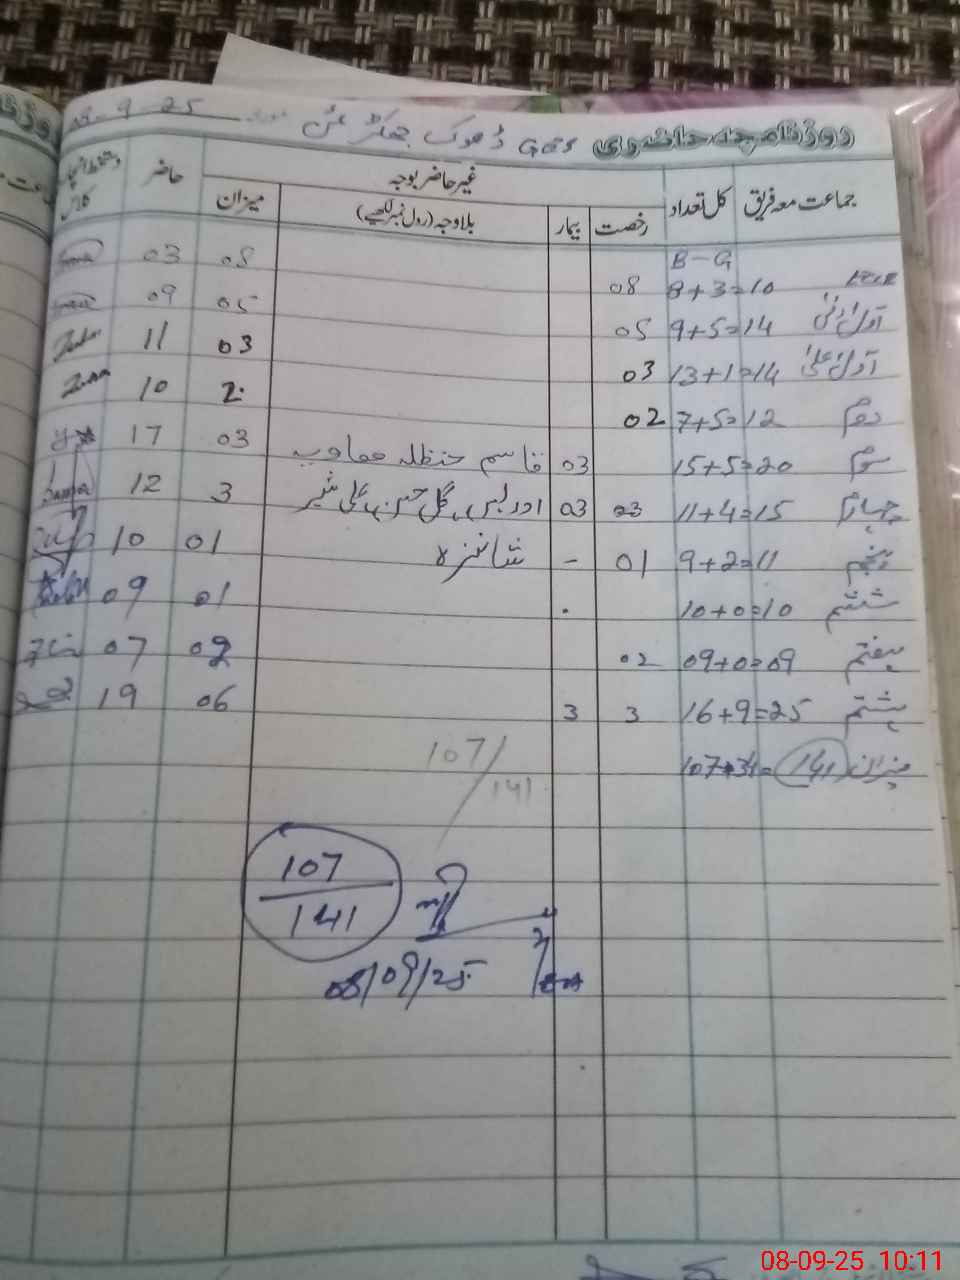 روزنامچہ حاضری GES ڈھوک جھکڑ 08-9-25
جماعت معہ فریق کل تعداد غیر حاضر بوجہ حاضر دستخط انچارج کلاس
رخصت بیمار بلاوجہ (رول نمبر لکھیے) میزان
B - G
ECCE 8+3=10 08 08 03
اول ادنیٰ 9+5=14 05 05 09
اول اعلیٰ 13+1=14 03 03 11
دوم 7+5=12 02 2 10
سوم 15+5=20 03 قاسم حنظلہ معاویہ 03 17
چہارم 11+4=15 03 03 ادریس, گل حسن, علی شیر 3 12
پنجم 9+2=11 01 - شانزہ 01 10
ششم 10+0=10 . 01 09
ہفتم 09+0=09 02 02 07
ہشتم 16+9=25 3 3 06 19
میزان 107+34=141
107/141
107
141
08/09/25
08-09-25 10:11